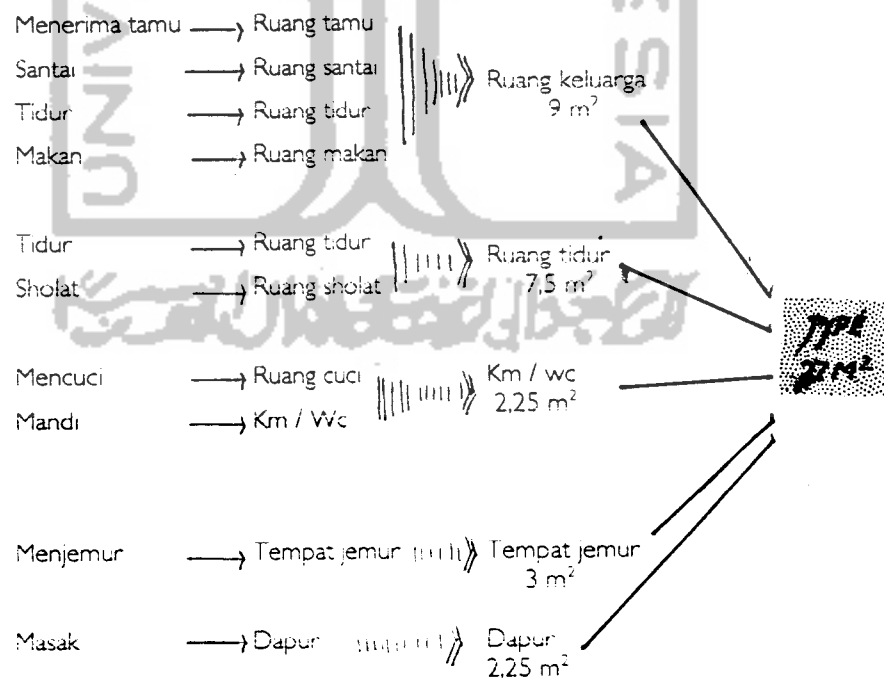 Menerima tamu → Ruang tamu
Santai → Ruang santai
Tidur → Ruang tidur
Makan → Ruang makan
Ruang keluarga
9 m²
Tidur → Ruang tidur
Sholat → Ruang sholat
Ruang tidur
7,5 m²
Mencuci → Ruang cuci
Mandi → Km / Wc
Km / wc
2,25 m²
Menjemur → Tempat jemur
Tempat jemur
3 m²
Masak → Dapur
Dapur
2,25 m²
TYPE
M²
ESIA